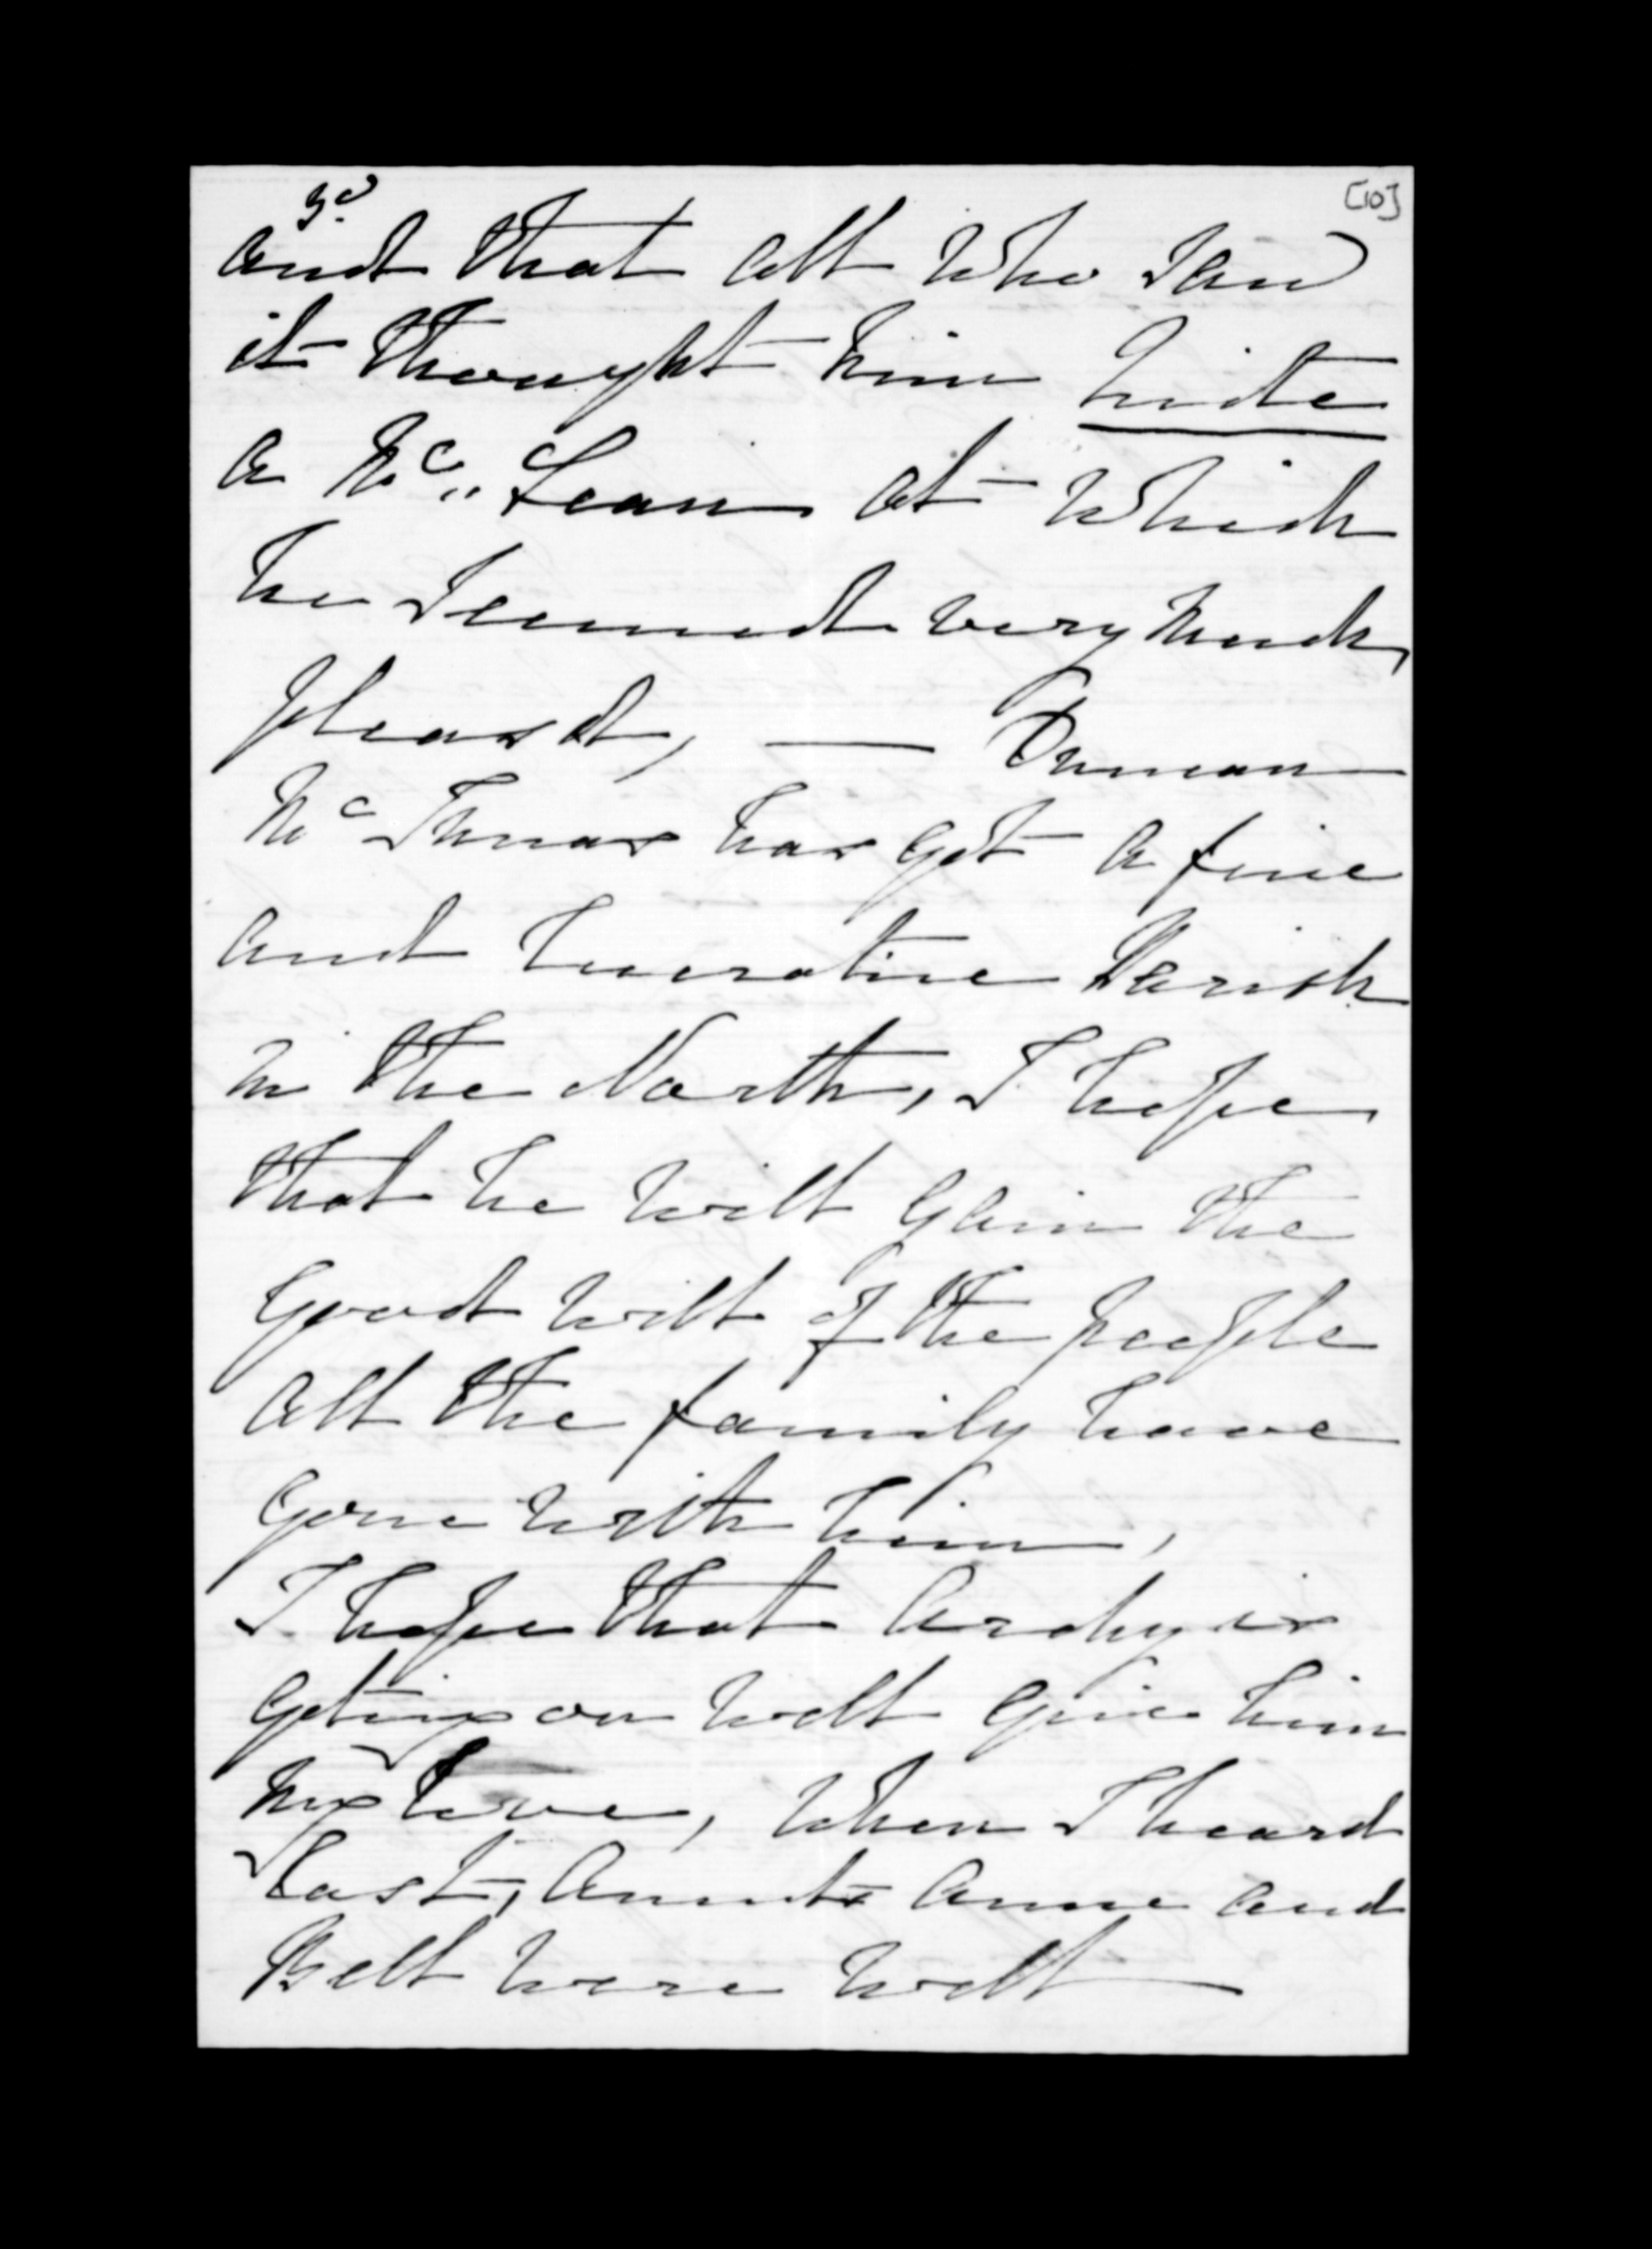 3d [10]
and that all who saw
it thought him quite
a Mc Lean at which
he seemed very much
pleasd, — Duncan
Mc Innas has got a fine
and lucrative Parish
in the North, I hope
that he will gain the
good will of the people
all the family have
gone with him,
I hope that Archy is
geting on well give him
my love, when I heard
last, Aunts Anne and
Bell were well —